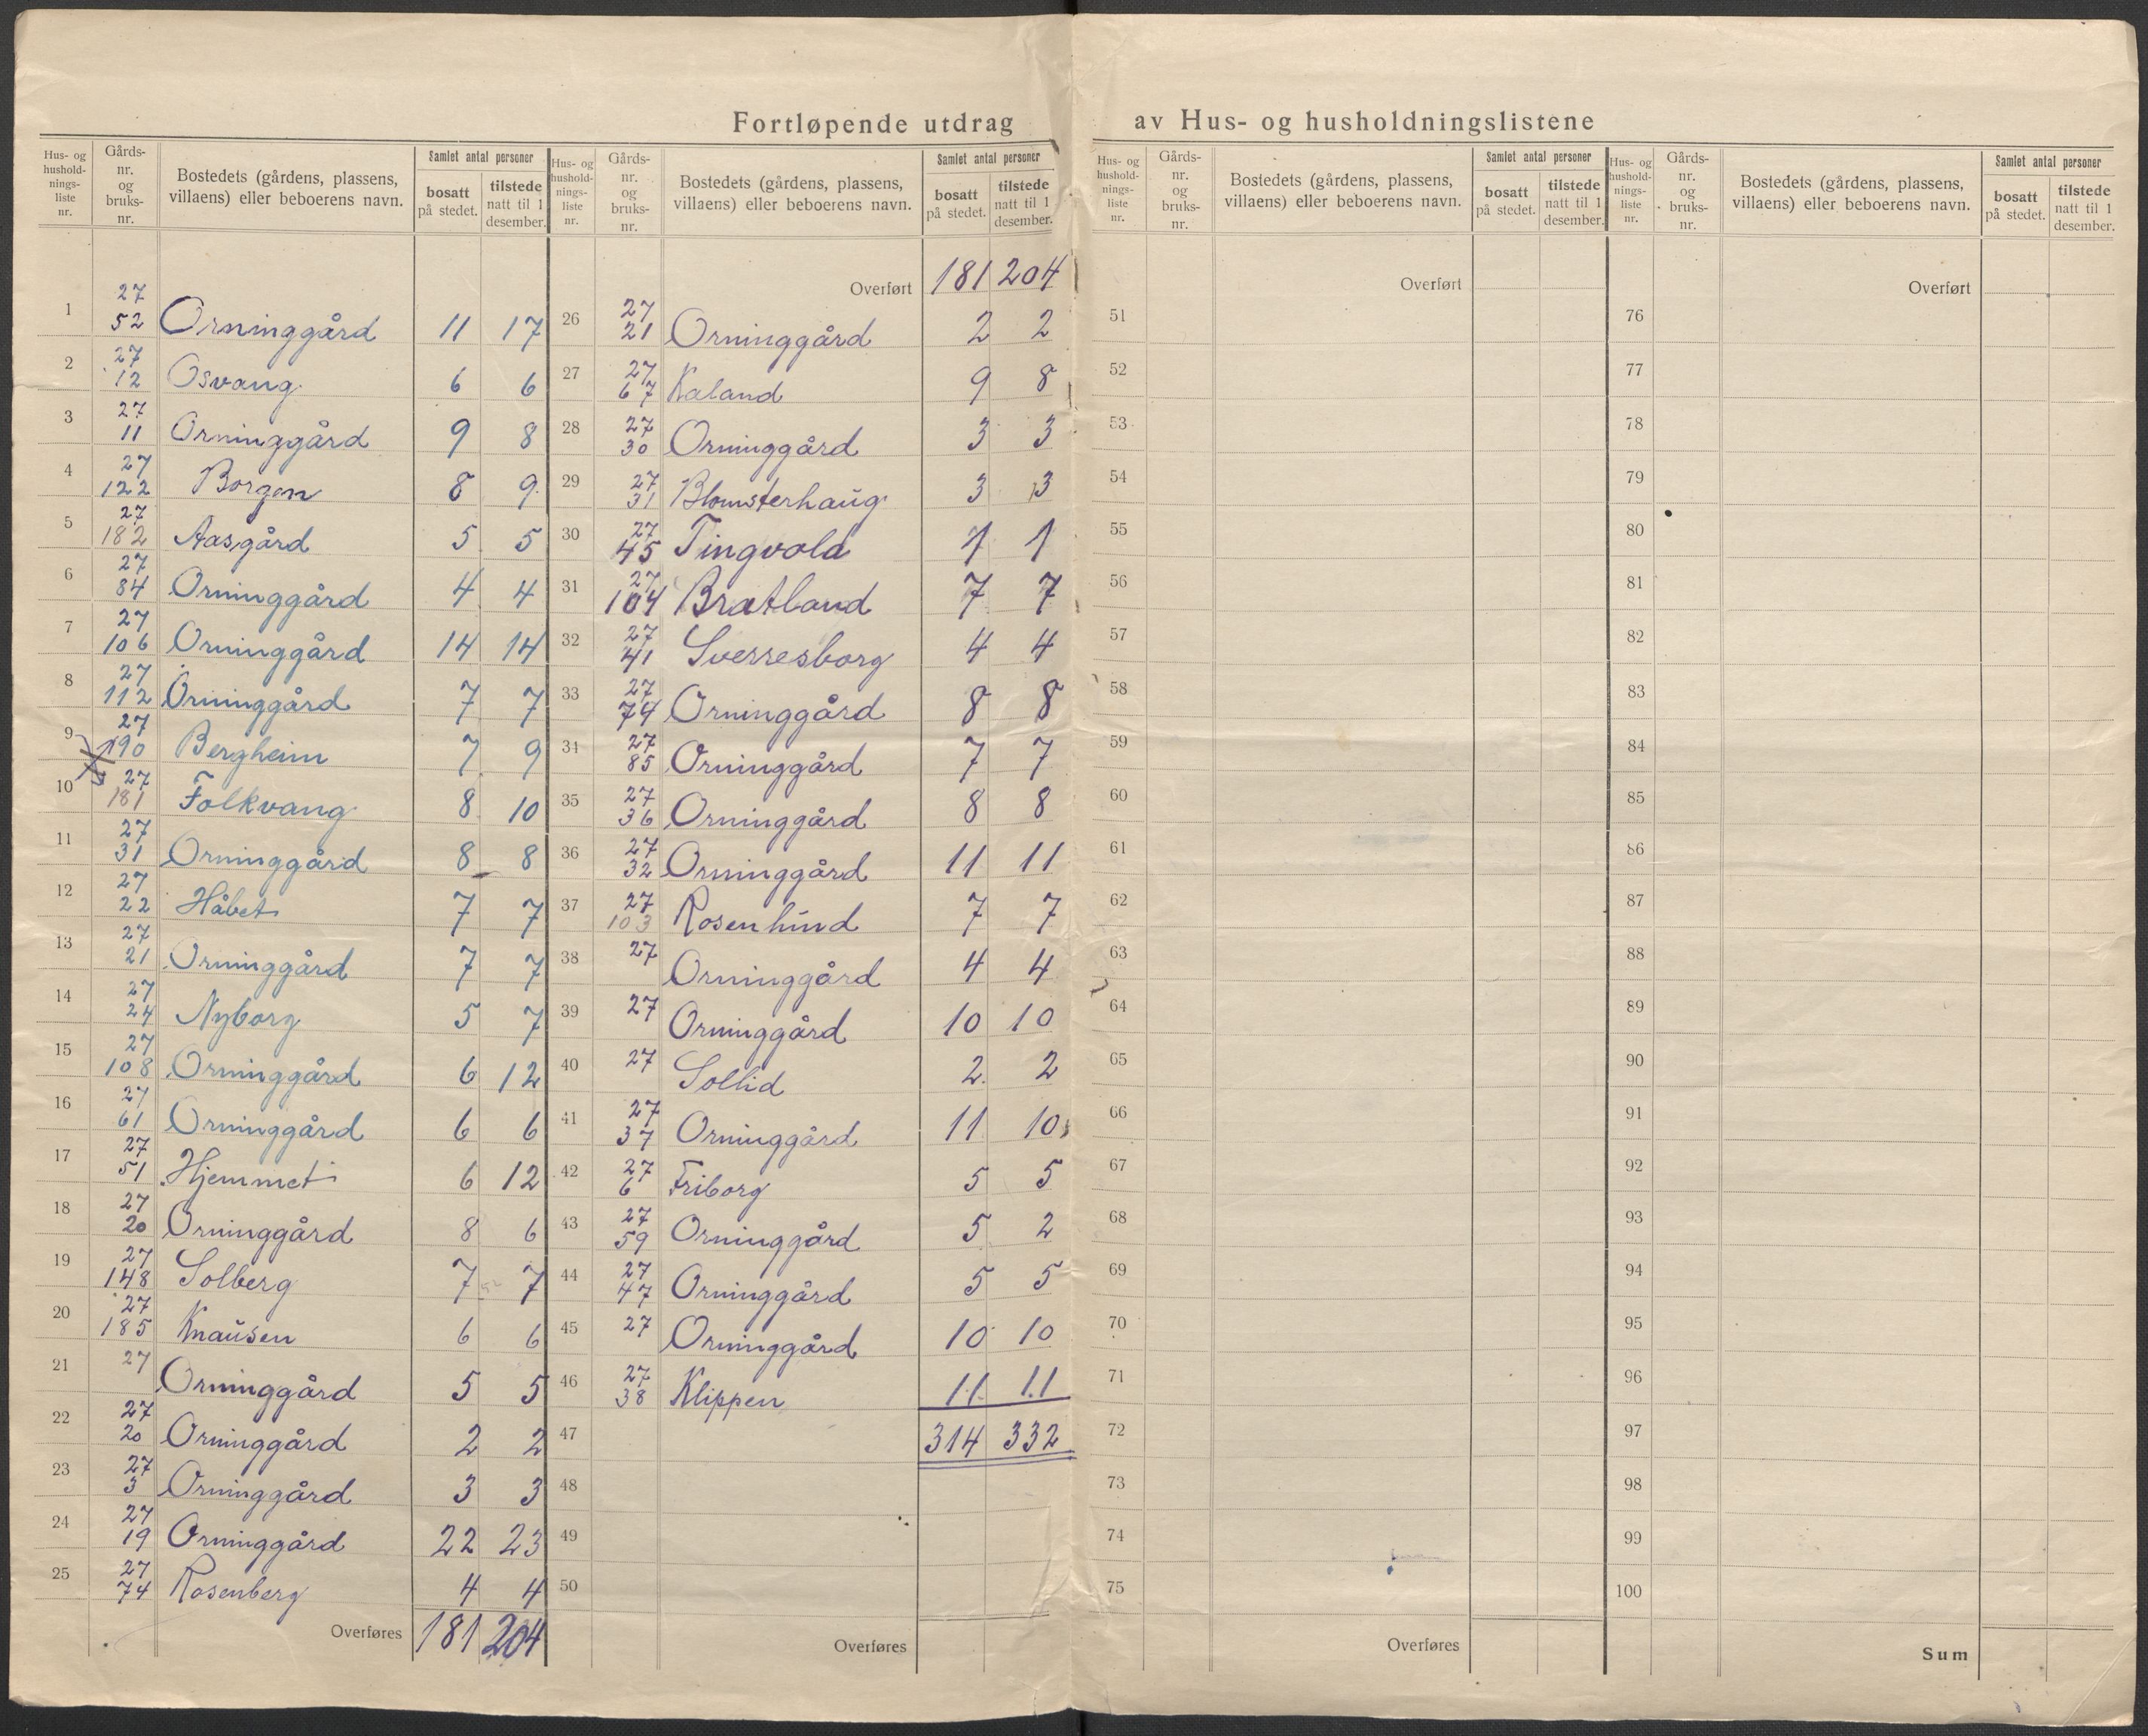 Fortløpende utdrag av Hus- og husholdningslistene
Hus- og hushold- nings- liste nr. Gårds- nr. og bruks- nr. Bostedets (gårdens, plassens, villaens) eller beboerens navn. Samlet antal personer bosatt på stedet. tilstede natt til 1 desember.
1 27 52 Orninggård 11 17
2 27 12 Osvang 6 6
3 27 11 Orninggård 9 8
4 27 122 Borgen 8 9
5 27 182 Aasgård 5 5
6 27 84 Orninggård 4 4
7 27 106 Orninggård 14 14
8 27 112 Orninggård 7 7
9 27 190 Bergheim 7 9
10 27 181 Folkvang 8 10
11 27 31 Orninggård 8 8
12 27 22 Håbet 7 7
13 27 21 Orninggård 7 7
14 27 24 Nyborg 5 7
15 27 108 Orninggård 6 12
16 27 61 Orninggård 6 6
17 27 51 Hjemmet 6 12
18 27 20 Orninggård 8 6
19 27 148 Solberg 7 7
20 27 185 Knausen 6 6
21 27 Orninggård 5 5
22 27 20 Orninggård 2 2
23 27 3 Orninggård 3 3
24 27 19 Orninggård 22 23
25 27 74 Rosenberg 4 4
Overføres 181 204
Hus- og hushold- nings- liste nr. Gårds- nr. og bruks- nr. Bostedets (gårdens, plassens, villaens) eller beboerens navn. Samlet antal personer bosatt på stedet. tilstede natt til 1 desember.
Overført 181 204
26 27 21 Orninggård 2 2
27 27 67 Kaland 9 8
28 27 30 Orninggård 3 3
29 27 31 Blomsterhaug 3 3
30 27 45 Tingvold 1 1
31 27 104 Bratland 7 7
32 27 41 Sverresborg 4 4
33 27 74 Orninggård 8 8
34 27 85 Orninggård 7 7
35 27 36 Orninggård 8 8
36 27 32 Orninggård 11 11
37 27 103 Rosenlund 7 7
38 27 Orninggård 4 4
39 27 Orninggård 10 10
40 27 Sollid 2 2
41 27 37 Orninggård 11 10
42 27 6 Friborg 5 5
43 27 59 Orninggård 5 2
44 27 47 Orninggård 5 5
45 27 Orninggård 10 10
46 27 38 Klippen 11 11
47 314 332
48
49
50
Overføres
Hus- og hushold- nings- liste nr. Gårds- nr. og bruks- nr. Bostedets (gårdens, plassens, villaens) eller beboerens navn. Samlet antal personer bosatt på stedet. tilstede natt til 1 desember.
Overført
51
52
53
54
55
56
57
58
59
60
61
62
63
64
65
66
67
68
69
70
71
72
73
74
75
Overføres
Hus- og hushold- nings- liste nr. Gårds- nr. og bruks- nr. Bostedets (gårdens, plassens, villaens) eller beboerens navn. Samlet antal personer bosatt på stedet. tilstede natt til 1 desember.
Overført
76
77
78
79
80
81
82
83
84
85
86
87
88
89
90
91
92
93
94
95
96
97
98
99
100
Sum